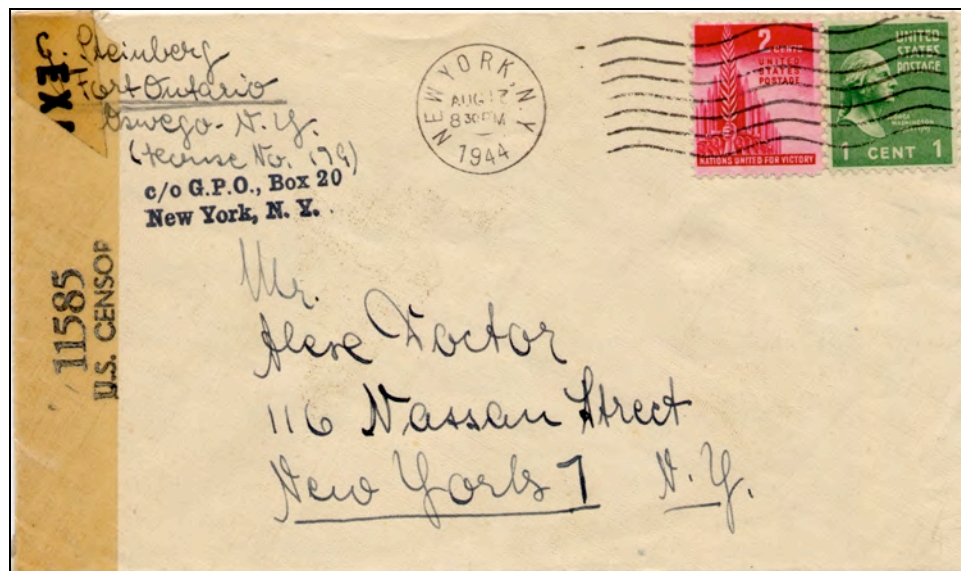 G. Steinberg
Fort Ontario
Oswego - N.Y.
(House No. 179)
c/o G.P.O., Box 20
New York, N. Y.
NEW YORK, N.Y.
8 30 PM
1944
2 CENTS
UNITED
STATES
POSTAGE
NATIONS UNITED FOR VICTORY
UNITED
STATES
POSTAGE
1 CENT 1
11585
U.S. CENSOR
Mr.
Doctor
116 Nassau Street
New York 7 N.Y.